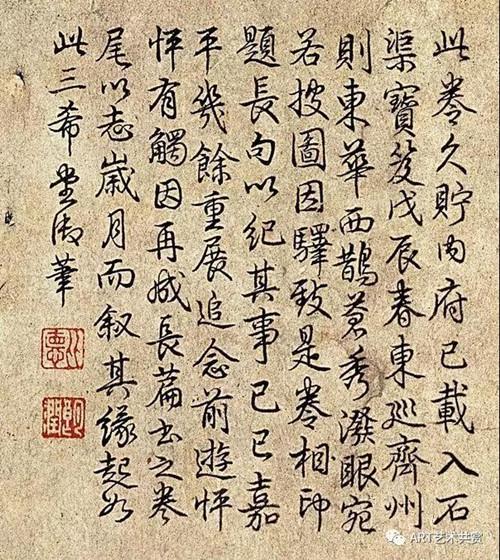 此卷久貯内府已載入石
渠寶笈戊辰春東巡齊州
則東華西鵲蒼秀潑眼宛
若披圖因驛致是卷相印
題長句以紀其事己巳嘉
平幾餘重展追念前遊怦
怦有觸因再成長篇書之卷
尾以志歲月而敘其緣起如
此三希堂御筆
比悳
朗潤
ART艺术共赏